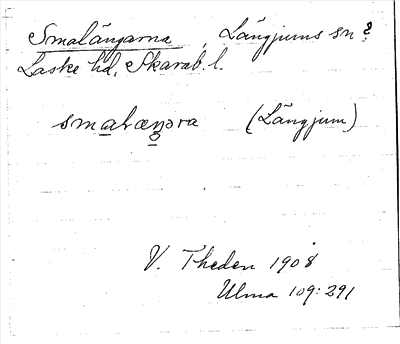 Smalängarna, Längjums sn?
Laske hd, Skarab. l.
(Längjum)
V. Theden 1908
Ulma 109:291